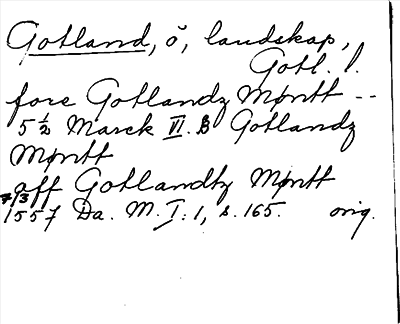 Gotland, ö, landskap,
Gotl. l.
fore Gotlandz Møntt --
5½ Marck VI. ß Gotlandz
Møntt
aff Gotlandtz Møntt
7/3
1557 Da. M. I: 1, s. 165. orig.